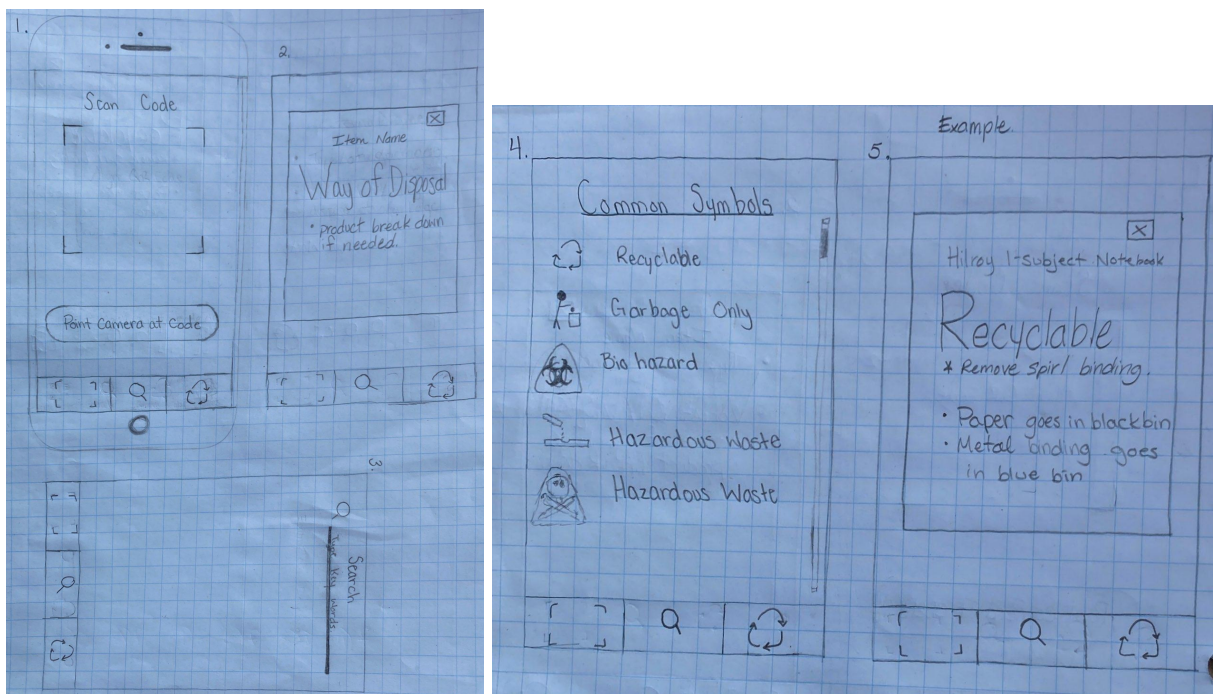 1.
Scan Code
Point Camera at Code
2.
Item Name
Way of Disposal
• product break down
if needed.
3.
Search
Type Key Words
4.
Common Symbols
Recyclable
Garbage Only
Bio hazard
Hazardous Waste
Hazardous Waste
Example.
5.
Hilroy 1-subject Notebook
Recyclable
* Remove spirl binding.
• Paper goes in black bin
• Metal binding goes
in blue bin